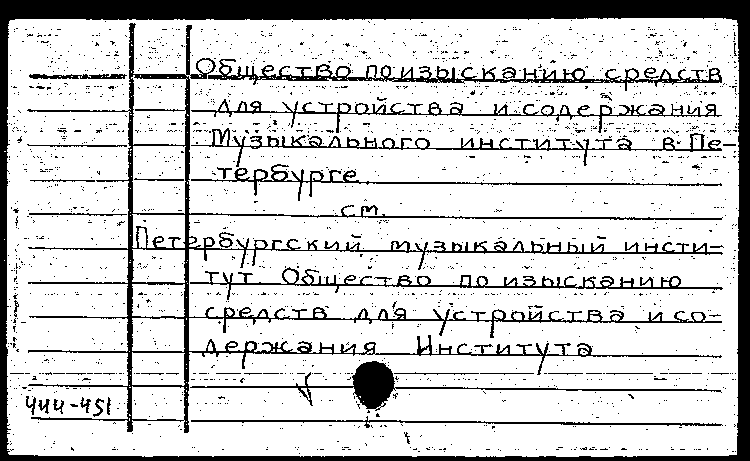 Общество по изысканию средств
для устройства и содержания
Музыкального института в Пе-
тербурге.
см.
Петербургский музыкальный инсти-
тут. Общество по изысканию
средств для устройства и со-
держания Института
444-451